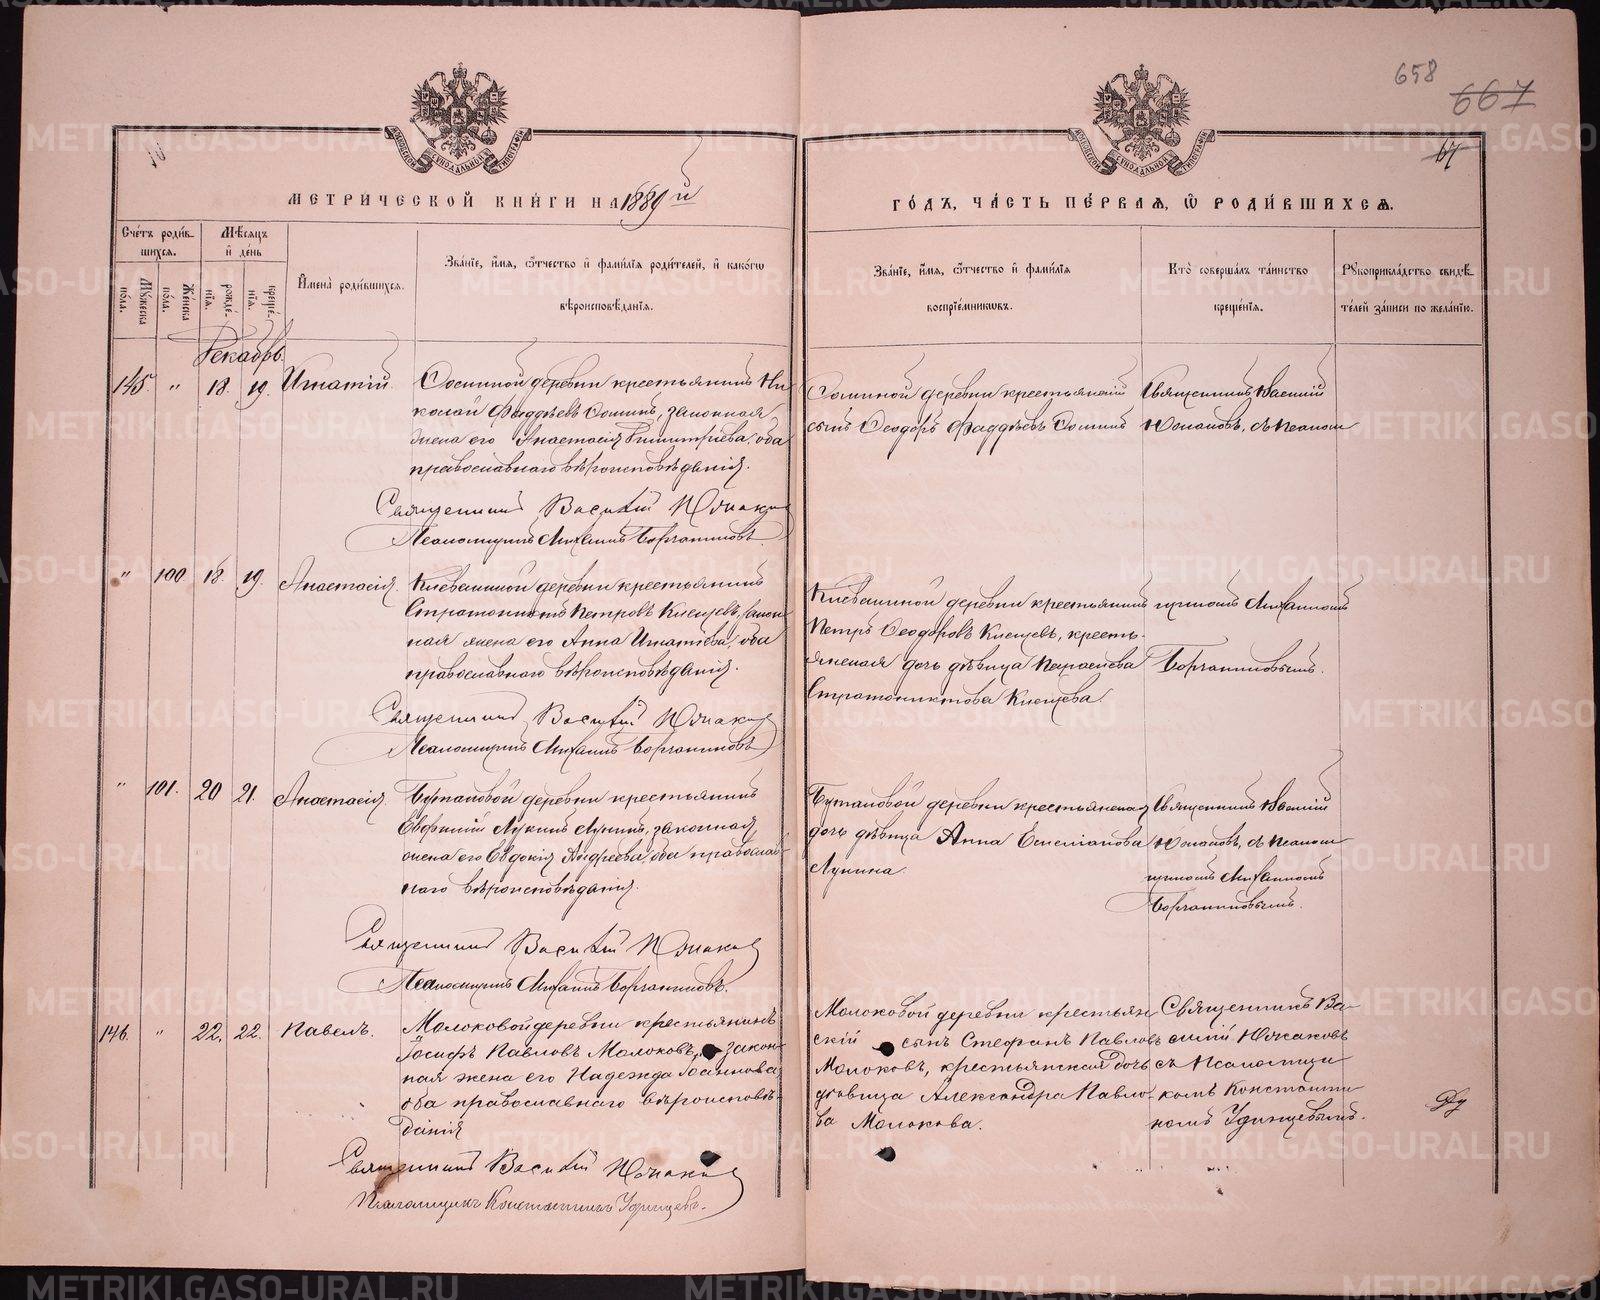 658
667
67
МОСКОВСКОЙ СѴНОДАЛЬНОЙ ТИПОГРАФІИ
МОСКОВСКОЙ СѴНОДАЛЬНОЙ ТИПОГРАФІИ
МЕТРИЧЕСКОЙ КНИГИ НА 1889 й
ГОДЪ, ЧАСТЬ ПЕРВАЯ, Ѡ РОДИВШИХСЯ.
Счетъ родившихся.
Мужеска пола.
Женска пола.
Мѣсяцъ и день
рожденія.
крещенія.
Имена родившихся.
Званіе, имя, ѿчество и фамилія родителей, и какогѡ
вѣроисповѣданія.
Званіе, имя, ѿчество и фамилія
воспріемникѡвъ.
Кто совершалъ таинство
крещенія.
Рукоприкладство свидѣ-
телей записи по желанію.
Декабрь.
145. " 18. 19. Игнатій.
Сосниной деревни крестьянинъ Ни-
колай Фаддѣевъ Сосминъ, законная
жена его Анастасія Димитріева, оба
православнаго вѣроисповѣданія.
Священникъ Василій Южаковъ
Псаломщикъ Михаилъ Борчаниновъ.
Сосминой деревни крестьянскій
сынъ Ѳеодоръ Фаддѣевъ Сосминъ
Священникъ Василій
Южаковъ, съ псалом-
" 100. 18. 19. Анастасія.
Клевакиной деревни крестьянинъ
Стратоникъ Петровъ Клещевъ, закон-
ная жена его Анна Игнатіева, оба
православнаго вѣроисповѣданія.
Священникъ Василій Южаковъ
Псаломщикъ Михаилъ Борчаниновъ
деревни крестьянинъ
Петръ Ѳеодоровъ Клещевъ, кресть-
янская дочь дѣвица Параскева
Стратоникова Клещева.
щикомъ Михаиломъ
Борчаниновымъ.
" 101. 20 21. Анастасія.
Бутаковой деревни крестьянинъ
Евфимій Лукинъ Лунинъ, законная
жена его Евдокія Андреева, оба православ-
наго вѣроисповѣданія.
Священникъ Василій Южаковъ
Псаломщикъ Михаилъ Борчаниновъ.
деревни крестьянская
дочь дѣвица Анна Емеліанова
Лунина.
Священникъ Василій
Южаковъ, съ псалом-
щикомъ Михаиломъ
Борчаниновымъ.
146. " 22. 22. Павелъ.
Молоковой деревни крестьянинъ
Іосифъ Павловъ Молоковъ, закон-
ная жена его Надежда Іоаннова
оба православнаго вѣроисповѣ-
данія
Священникъ Василій Южаковъ
Псаломщикъ Константинъ Удинцевъ.
Молоковой деревни крестьян-
скій сынъ Стефанъ Павловъ
Молоковъ, крестьянская дочь
дѣвица Александра Павло-
ва Молокова.
Священникъ Ва-
силій Южаковъ
съ Псаломщи-
комъ Константи-
номъ Удинцевымъ.
METRIKI.GASO-URAL.RU